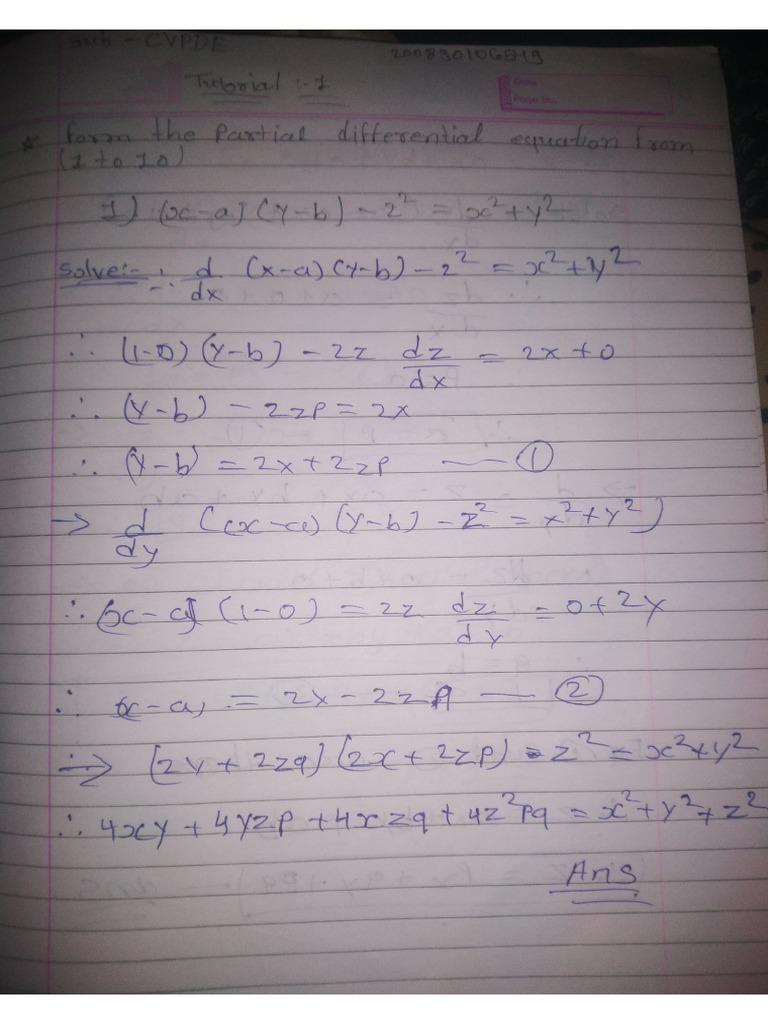 Sub :- CVPDE
200890106519
Tutorial :- 1
Date
Page No.
* form the Partial differential equation from
(1 to 10)
1) (x-a) (y-b) - z² = x²+y²
Solve:- ∴ d/dx (x-a) (y-b) - z² = x²+y²
∴ (1-0) (y-b) - 2z dz/dx = 2x+0
∴ (y-b) - 2zp = 2x
∴ (y-b) = 2x+2zp —— ①
→ d/dy ((x-a) (y-b) - z² = x²+y²)
∴ (x-a) (1-0) = 2z dz/dy = 0+2y
∴ (x-a) = 2x-2zq —— ②
∴→ (2y+2zq) (2x+2zp) - z² = x²+y²
∴ 4xy+4yzp+4xzq+4z²pq = x²+y²+z²
Ans